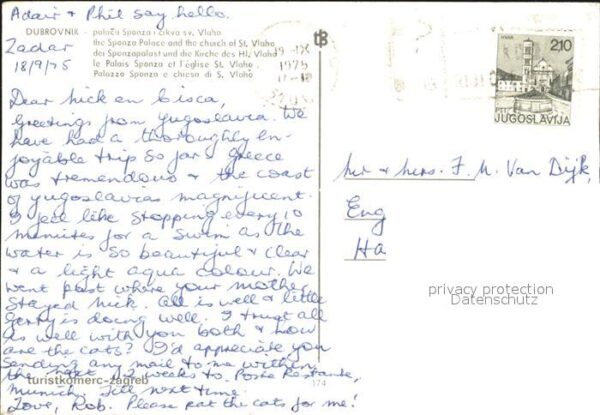 Adair & Phil say hello.
DUBROVNIK - palača Sponza i crkva sv. Vlaho
the Sponza Palace and the church of St. Vlaho
der Sponzapalast und die Kirche des Hl. Vlaho
le Palais Sponza et l'église St. Vlaho
Palazzo Sponza e chiesa di S. Vlaho
Zadar
18/9/75
Dear Nick en Cisca,
Greetings from Yugoslavia. We
have had a thoroughly en-
joyable trip so far & Greece
was tremendous & the coast
of Yugoslavias magnificent.
I feel like stopping every 10
minutes for a swim as the
water is so beautiful & clear
& a light aqua colour. We
went past where your mother
stayed Nick. All is well & little
Gerty is doing well. I trust all
is well with you both & how
are the cats? I'd appreciate you
sending any mail to me within
the next 2 weeks to. Poste Restante,
Munich. Till next time.
Love, Rob. Please pat the cats for me!
turistkomerc-zagreb
174
tB
19-IX
1975
210
PTT
JUGOSLAVIJA
Mr & Mrs. F. M. Van Dijk,
Eng
Ha
privacy protection
Datenschutz